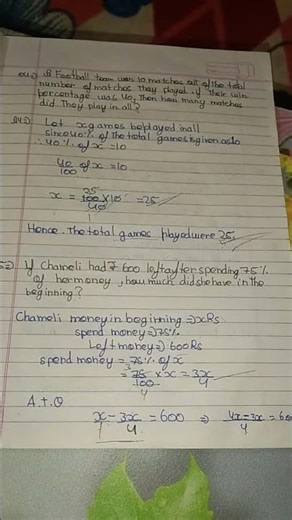 A Football team won 10 matches out of the total
number of matches they played. If their win
percentage was 40, then how many matches
did They play in all?
Let x games be played in all
since 40% of the total games
∴ 40% of x = 10
40/100 of x = 10
x = 100 × 10 / 40 = 25
Hence. The total games played were 25.
If Chameli had ₹ 600 left after spending 75%
of her money, how much did she have in the
beginning?
Chameli money in beginning = x Rs
spend money = 75%
Left money = 600 Rs
spend money = 75% of x
= 75/100 × x = 3x/4
A.T.Q
x - 3x/4 = 600 ⇒ 4x - 3x/4 = 600